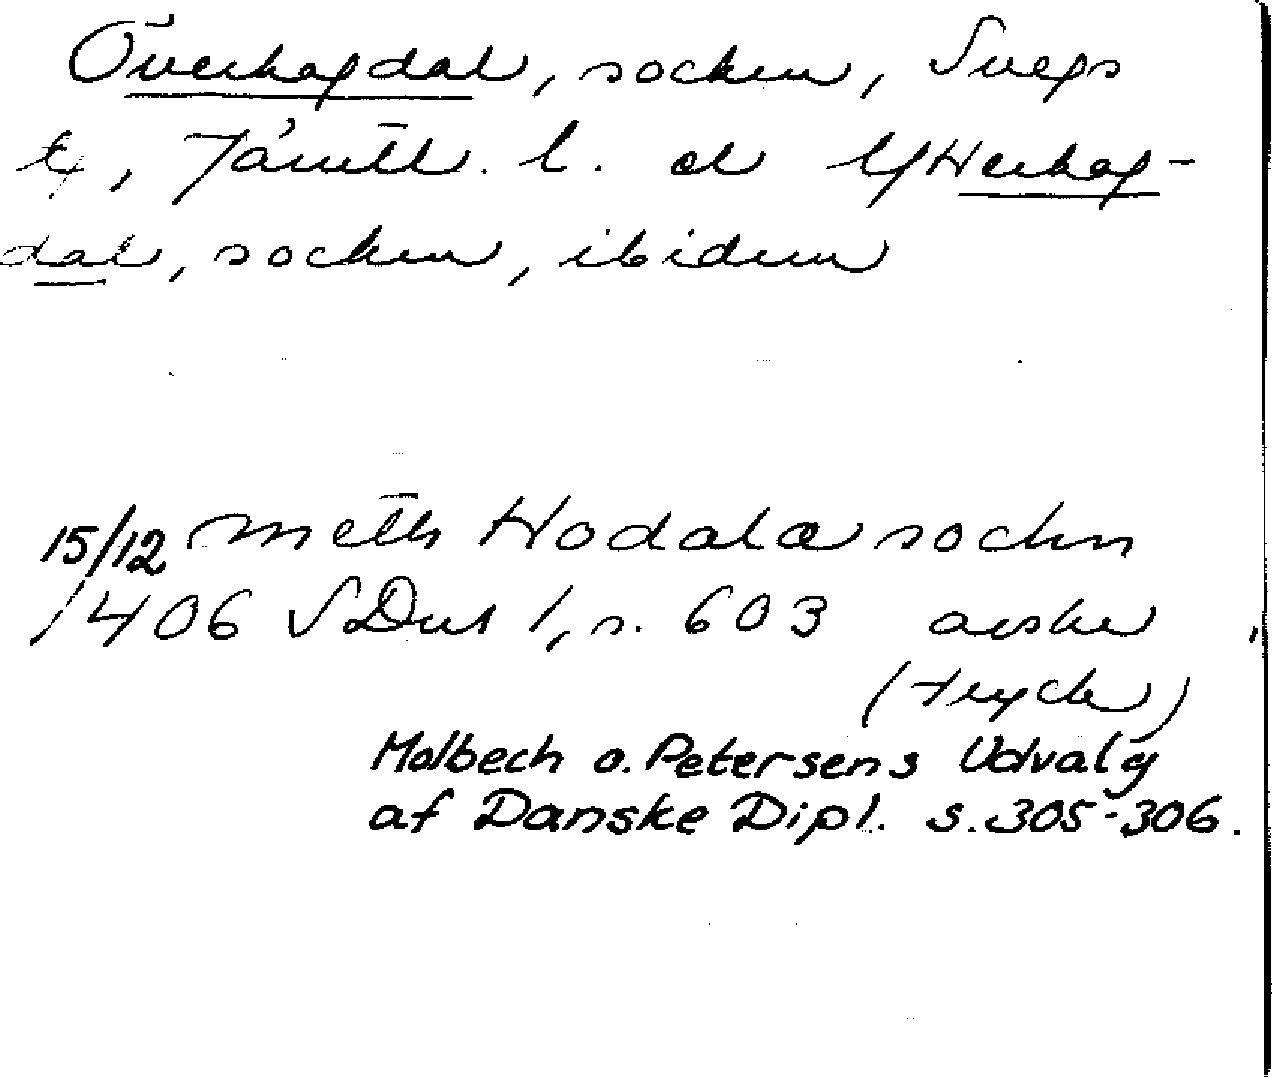 Överhogdal, socken, Svegs
tg, Jämtl. l. el Ytterhog-
dal, socken, ibidem
15/12 meth Hodala sochn
1406 SDns 1, s. 603 avskr
(tryck)
Molbech o. Petersens Udvalg
af Danske Dipl. s. 305-306.